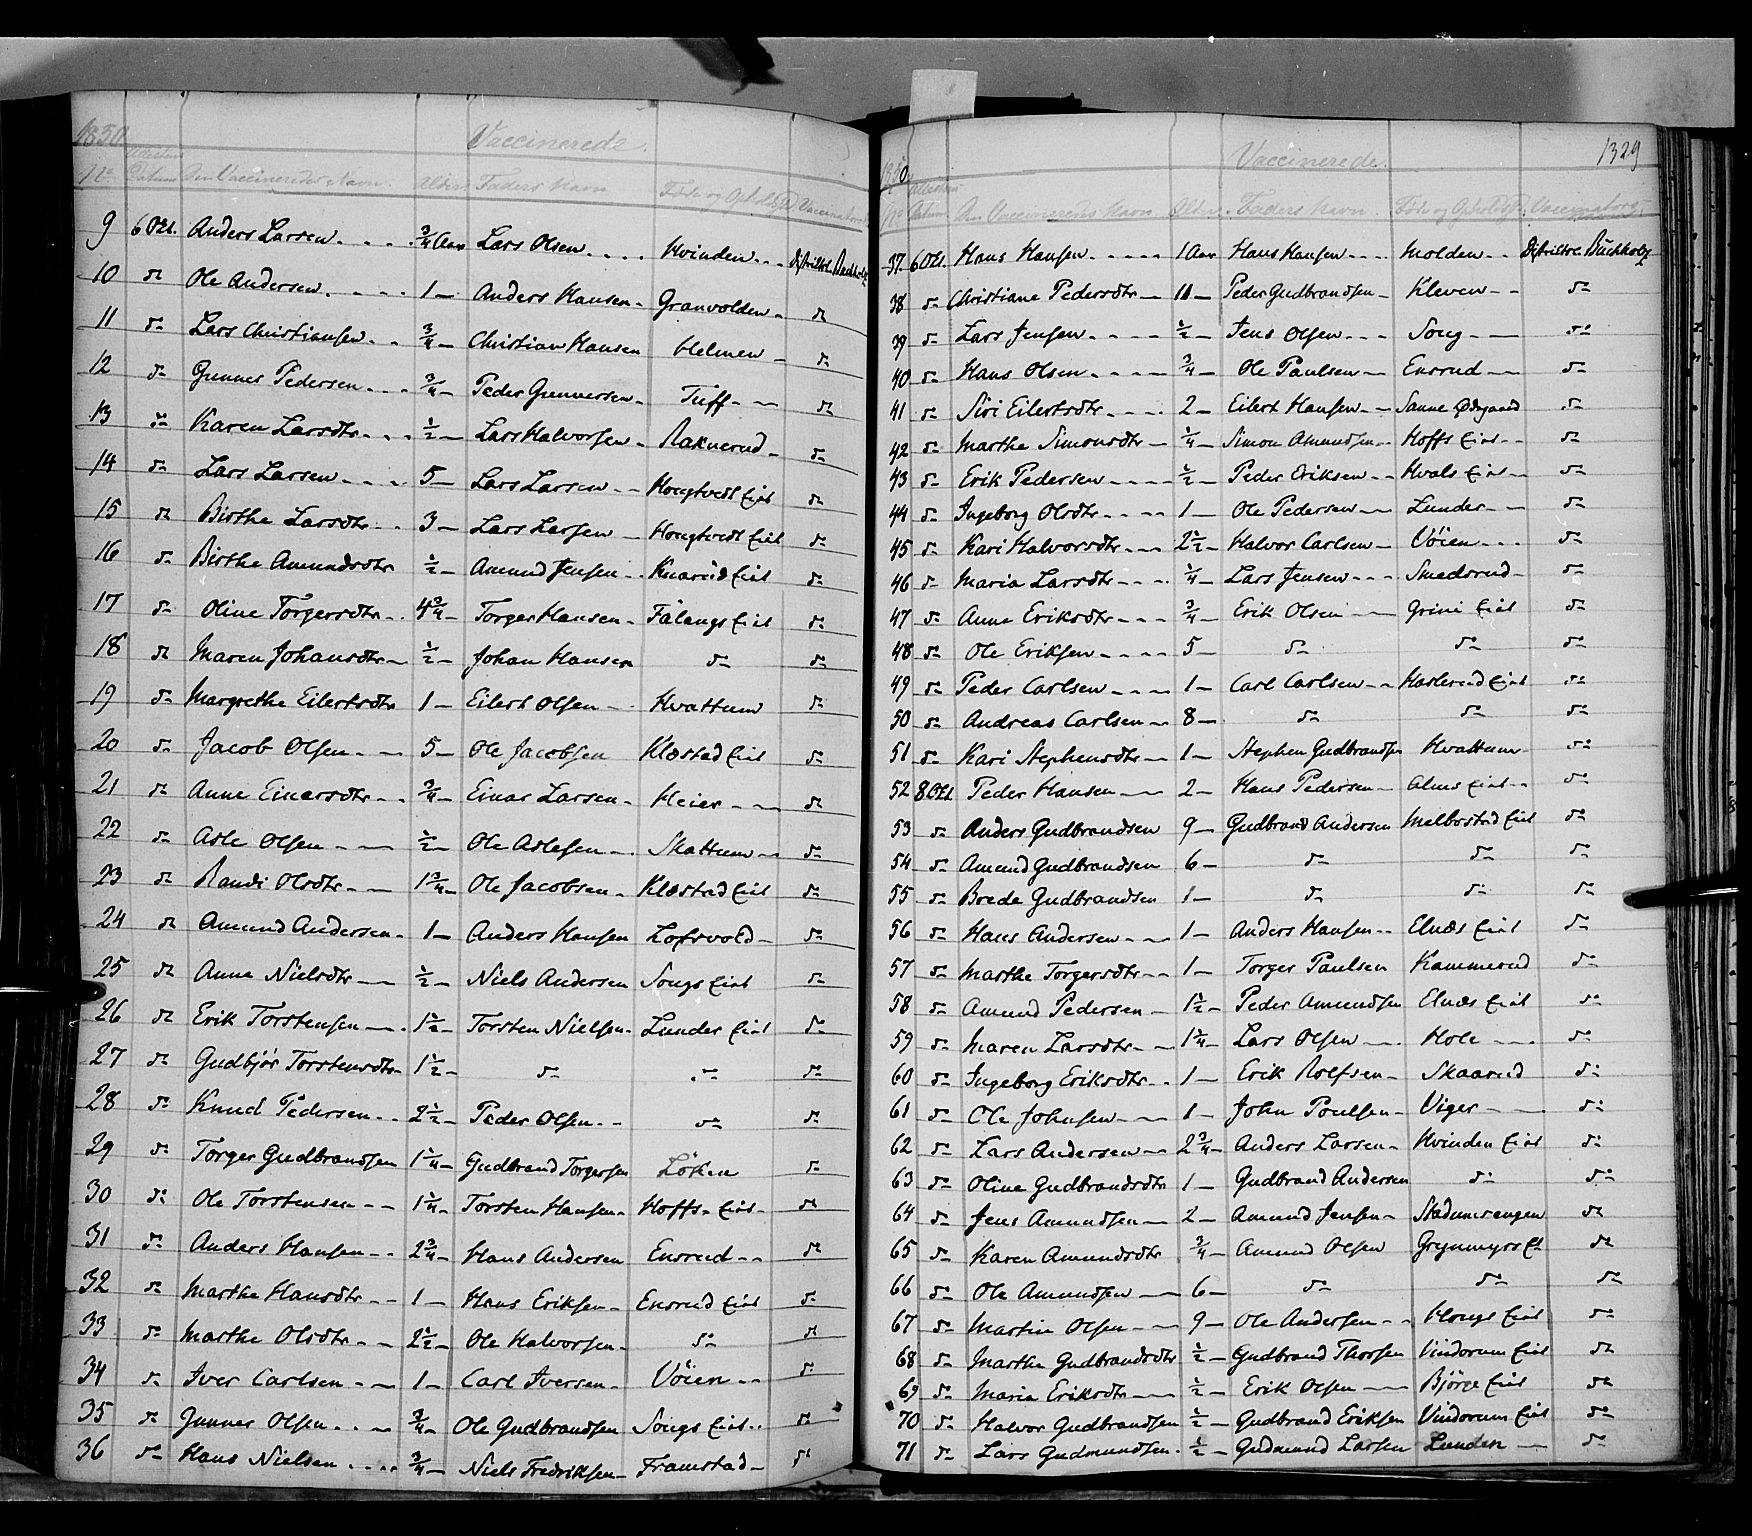 1850. Vaccinerede.
No Attestens Datum Den Vaccineredes Navn. Alder Faders Navn Føde og Opholds Vaccinateur
9 6 Okt. Anders Larsen. . . . 3/4 Aar Lars Olsen. . . . Hvinden. . . Distriktsl. Buchholz
10 do Ole Andersen. . . . 1 — Anders Hansen - Granvolden - do
11 do Lars Christiansen. . 3/4 — Christian Hansen Helmen - do
12 do Gunner Pedersen. . . 3/4 — Peder Gunnersen - Tuff - - do
13 do Karen Larsdtr. . . . 1/2 — Lars Halvorsen - Raknerud - do
14 do Lars Larsen. . . . 5 — Lars Larsen - - Hougtvedt Eiet do
15 do Birthe Larsdtr. . . 3 — Lars Larsen - - Hougtvedt Eiet do
16 do Birthe Amundsdtr 1/2 — Amund Jensen - - Knarud Eiet do
17 do Oline Torgersdtr - . 4 3/4 — Torger Hansen - Falangs Eiet do
18 do Maren Johansdtr — 1/2 — Johan Hansen do do
19 do Margrethe Eilertsdtr 1 — Eilert Olsen - - Hvattum do
20 do Jacob Olsen - — 5 — Ole Jacobsen Klæstad Eiet do
21 do Anne Einersdtr - - 3/4 — Einar Larsen - Heier - - do
22 do Asle Olsen - - — 1/2 — Ole Aslesen - - Skattum - do
23 do Randi Olsdtr - — 1 3/4 — Ole Jacobsen - Klæstad Eiet do
24 do Amund Andersen - 1 — Anders Hansen Loftvold - do
25 do Anne Nielsdtr — 1/2 — Niels Andersen Sougs Eiet do
26 do Erik Torstensen — . 1 1/2 — Torsten Nielsen - Lunder Eiet do
27 do Gudbjør Torstensdtr - 1 1/2 — do do do
28 do Knud Pedersen - - 2 1/2 — Peder Olsen - - do do
29 do Torger Gudbrandsen 1 1/4 — Gudbrand Torgersen Løken do
30 do Ole Torstensen - - 1 1/4 — Torsten Hansen - Hoffs - Eiet - do
31 do Anders Hansen - - 2 3/4 — Hans Andersen Ensrud - - do
32 do Marthe Hansdtr - - 1 — Hans Eriksen - Ensrud Eiet do
33 do Marthe Olsdtr - - 2 1/2 — Ole Halvorsen - do do
34 do Iver Carlsen - — 1 — Carl Iversen - Vöien - - do
35 do Gunner Olsen . . — 3/4 — Ole Gudbrandsen Sougs Eiet . . do
36 do Hans Nielsen . . . . 3/4 — Niels Fredriksen - Framstad - do
1850. Vaccinerede. 1329
No Attestens Datum Den Vaccineredes Navn. Alder. Faders Navn. Føde og Opholdsst. Vaccinateur
37. 6 Okt. Hans Hansen. . . . . 1 Aar Hans Hansen . . . Molden . . Distriktsl. Buchholz
38 do Christiane Pedersdtr — 11 — Peder Gudbrandsen - Kleven - - do
39 do Lars Jensen . . . . 1/2 — Jens Olsen - - - Soug - — do
40 do Hans Olsen - - - - 3/4 — Ole Paulsen — Ensrud — do
41 do Siri Eilertsdtr. . . . 2 — Eilert Hansen - - Sanne Ødegaard do
42 do Marthe Simonsdtr — 1/4 — Simon Amundsen - - Hoffs Eiet - - do
43 do Erik Pedersen - - - - 1/2 — Peder Eriksen - - Hvals Eiet - do
44 do Ingeborg Olsdtr - - - - 1 — Ole Pedersen — Lunder - — do
45 do Kari Halvorsdtr - - - 2 1/2 — Halvor Carlsen — Vöien . . . do
46 do Maria Larsdtr - - - . 1/4 — Lars Jensen - - - Smedsrud - do
47 do Anne Eriksdtr - - - 3/4 — Erik Olsen - — Grini Eiet do
48 do Ole Eriksen - - - - 5 — do do do
49 do Peder Carlsen - - - - 1 — Carl Carlsen - - Haslerud Eiet do
50 do Andreas Carlsen - - 8 — do do do
51 do Kari Stephensdtr — 1 — Stephen Gudbrandsen Hvattum do
52 8 Okt. Peder Hansen - — 2 — Hans Pedersen - Alms Eiet - - do
53 do Anders Gudbrandsen 9 — Gudbrand Andersen Melbostad Eiet do
54 do Amund Gudbrandsen 6 — do do do
55 do Brede Gudbrandsen 1 — do do do
56 do Hans Andersen - - - 1 — Anders Hansen - - Elnæs Eiet do
57 do Marthe Torgersdtr - - 1 — Torger Paulsen Kammerud do
58 do Amund Pedersen - 1 1/2 — Peder Amundsen Elnæs Eiet do
59 do Maren Larsdtr - - 1 1/4 — Lars Olsen - — Hole - — do
60 do Ingeborg Eriksdtr . . 1 — Erik Rolfsen - Skaarud do
61 do Ole Johnsen - — 1 — John Poulsen - Viger - — do
62 do Lars Andersen - - 2 3/4 — Anders Larsen - Hvinden Eiet do
63 do Oline Gudbrandsdtr 1 — Gudbrand Andersen do do
64 do Jens Amundsen — 2 — Amund Jensen - Stadumsengen do
65 do Karen Amundsdtr 3/4 — Amund Olsen Grynmyrs Et do
66 do Ole Amundsen — 6 — do do do
67 do Martin Olsen - — 9 — Ole Andersen - - Hougs Eiet do
68 do Marthe Gudbrandsdtr 1/2 — Gudbrand Thorsen Vindorum Eiet do
69 do Maria Eriksdtr - — 1/2 — Erik Olsen — Bjørge Eiet do
70 do Halvor Gudbrandsen 1/2 — Gudbrand Eriksen Vindorum Eiet do
71 do Lars Gudmundsen . 1/2 — Gudmund Larsen Lunden — do